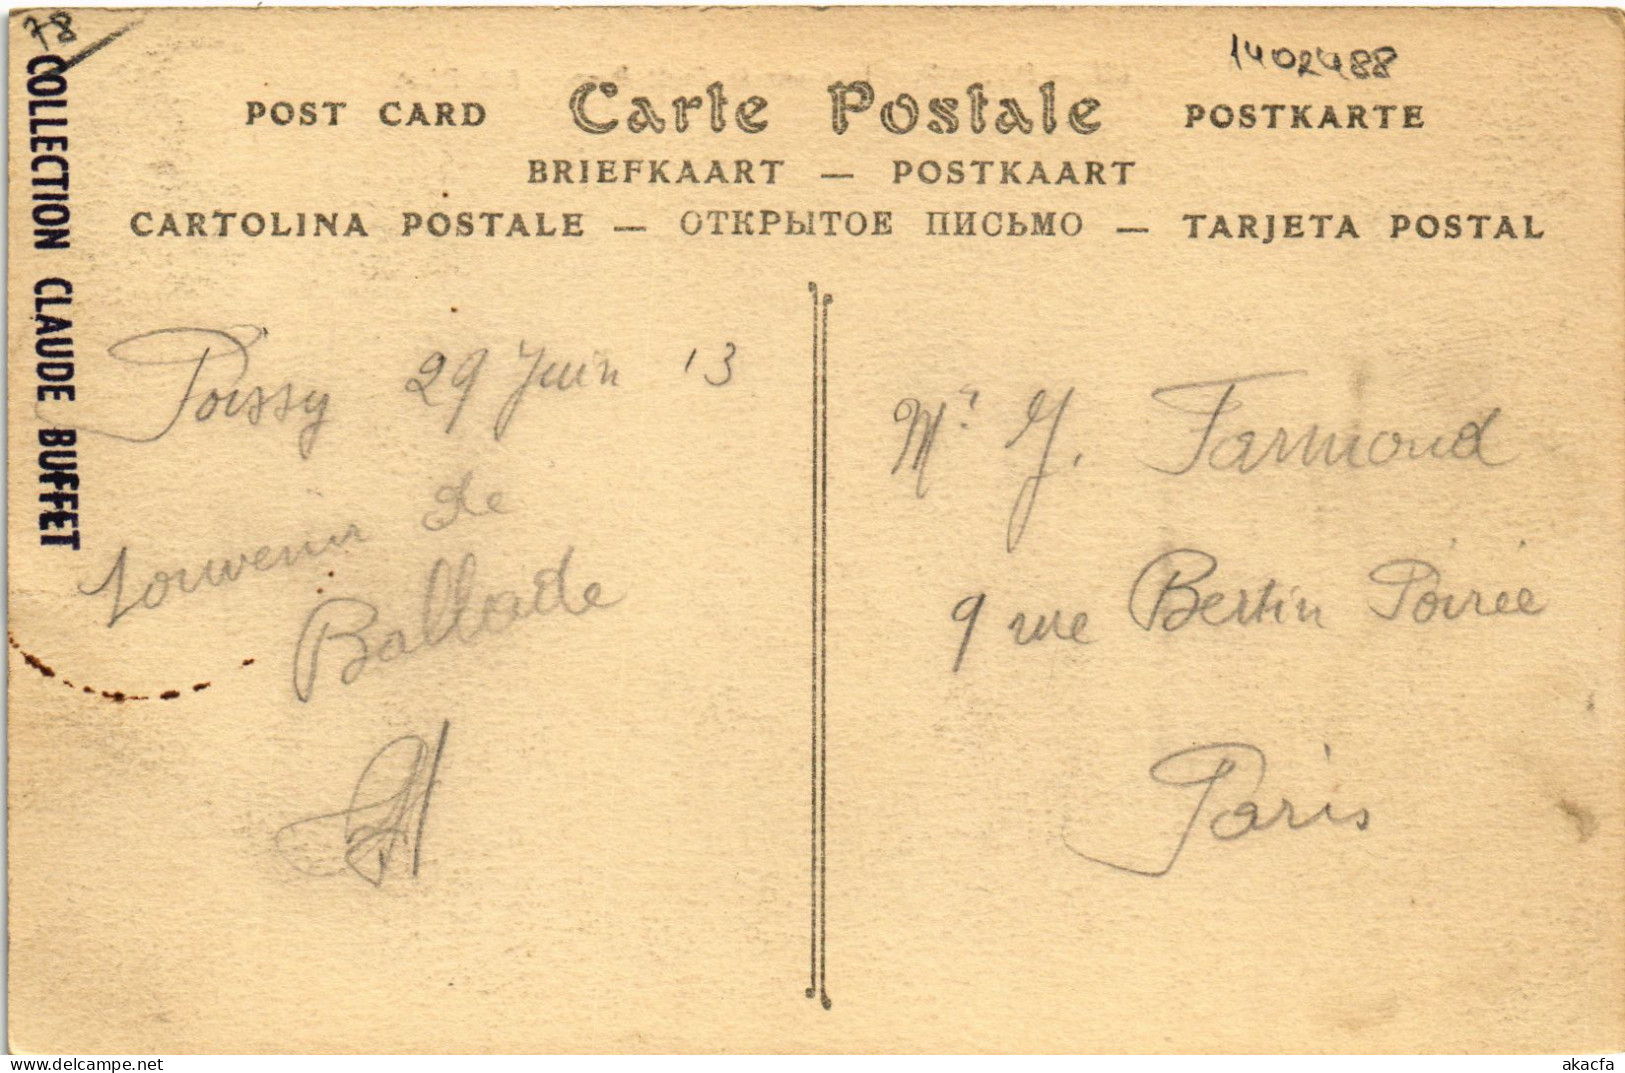 78
COLLECTION CLAUDE BUFFET
1402488
POST CARD Carte Postale POSTKARTE
BRIEFKAART — POSTKAART
CARTOLINA POSTALE — ОТКРЫТОЕ ПИСЬМО — TARJETA POSTAL
Poissy 29 Juin 13
Souvenir de
Ballade
Mr J. Farmond
9 rue Bertin Poirée
Paris
akacfa